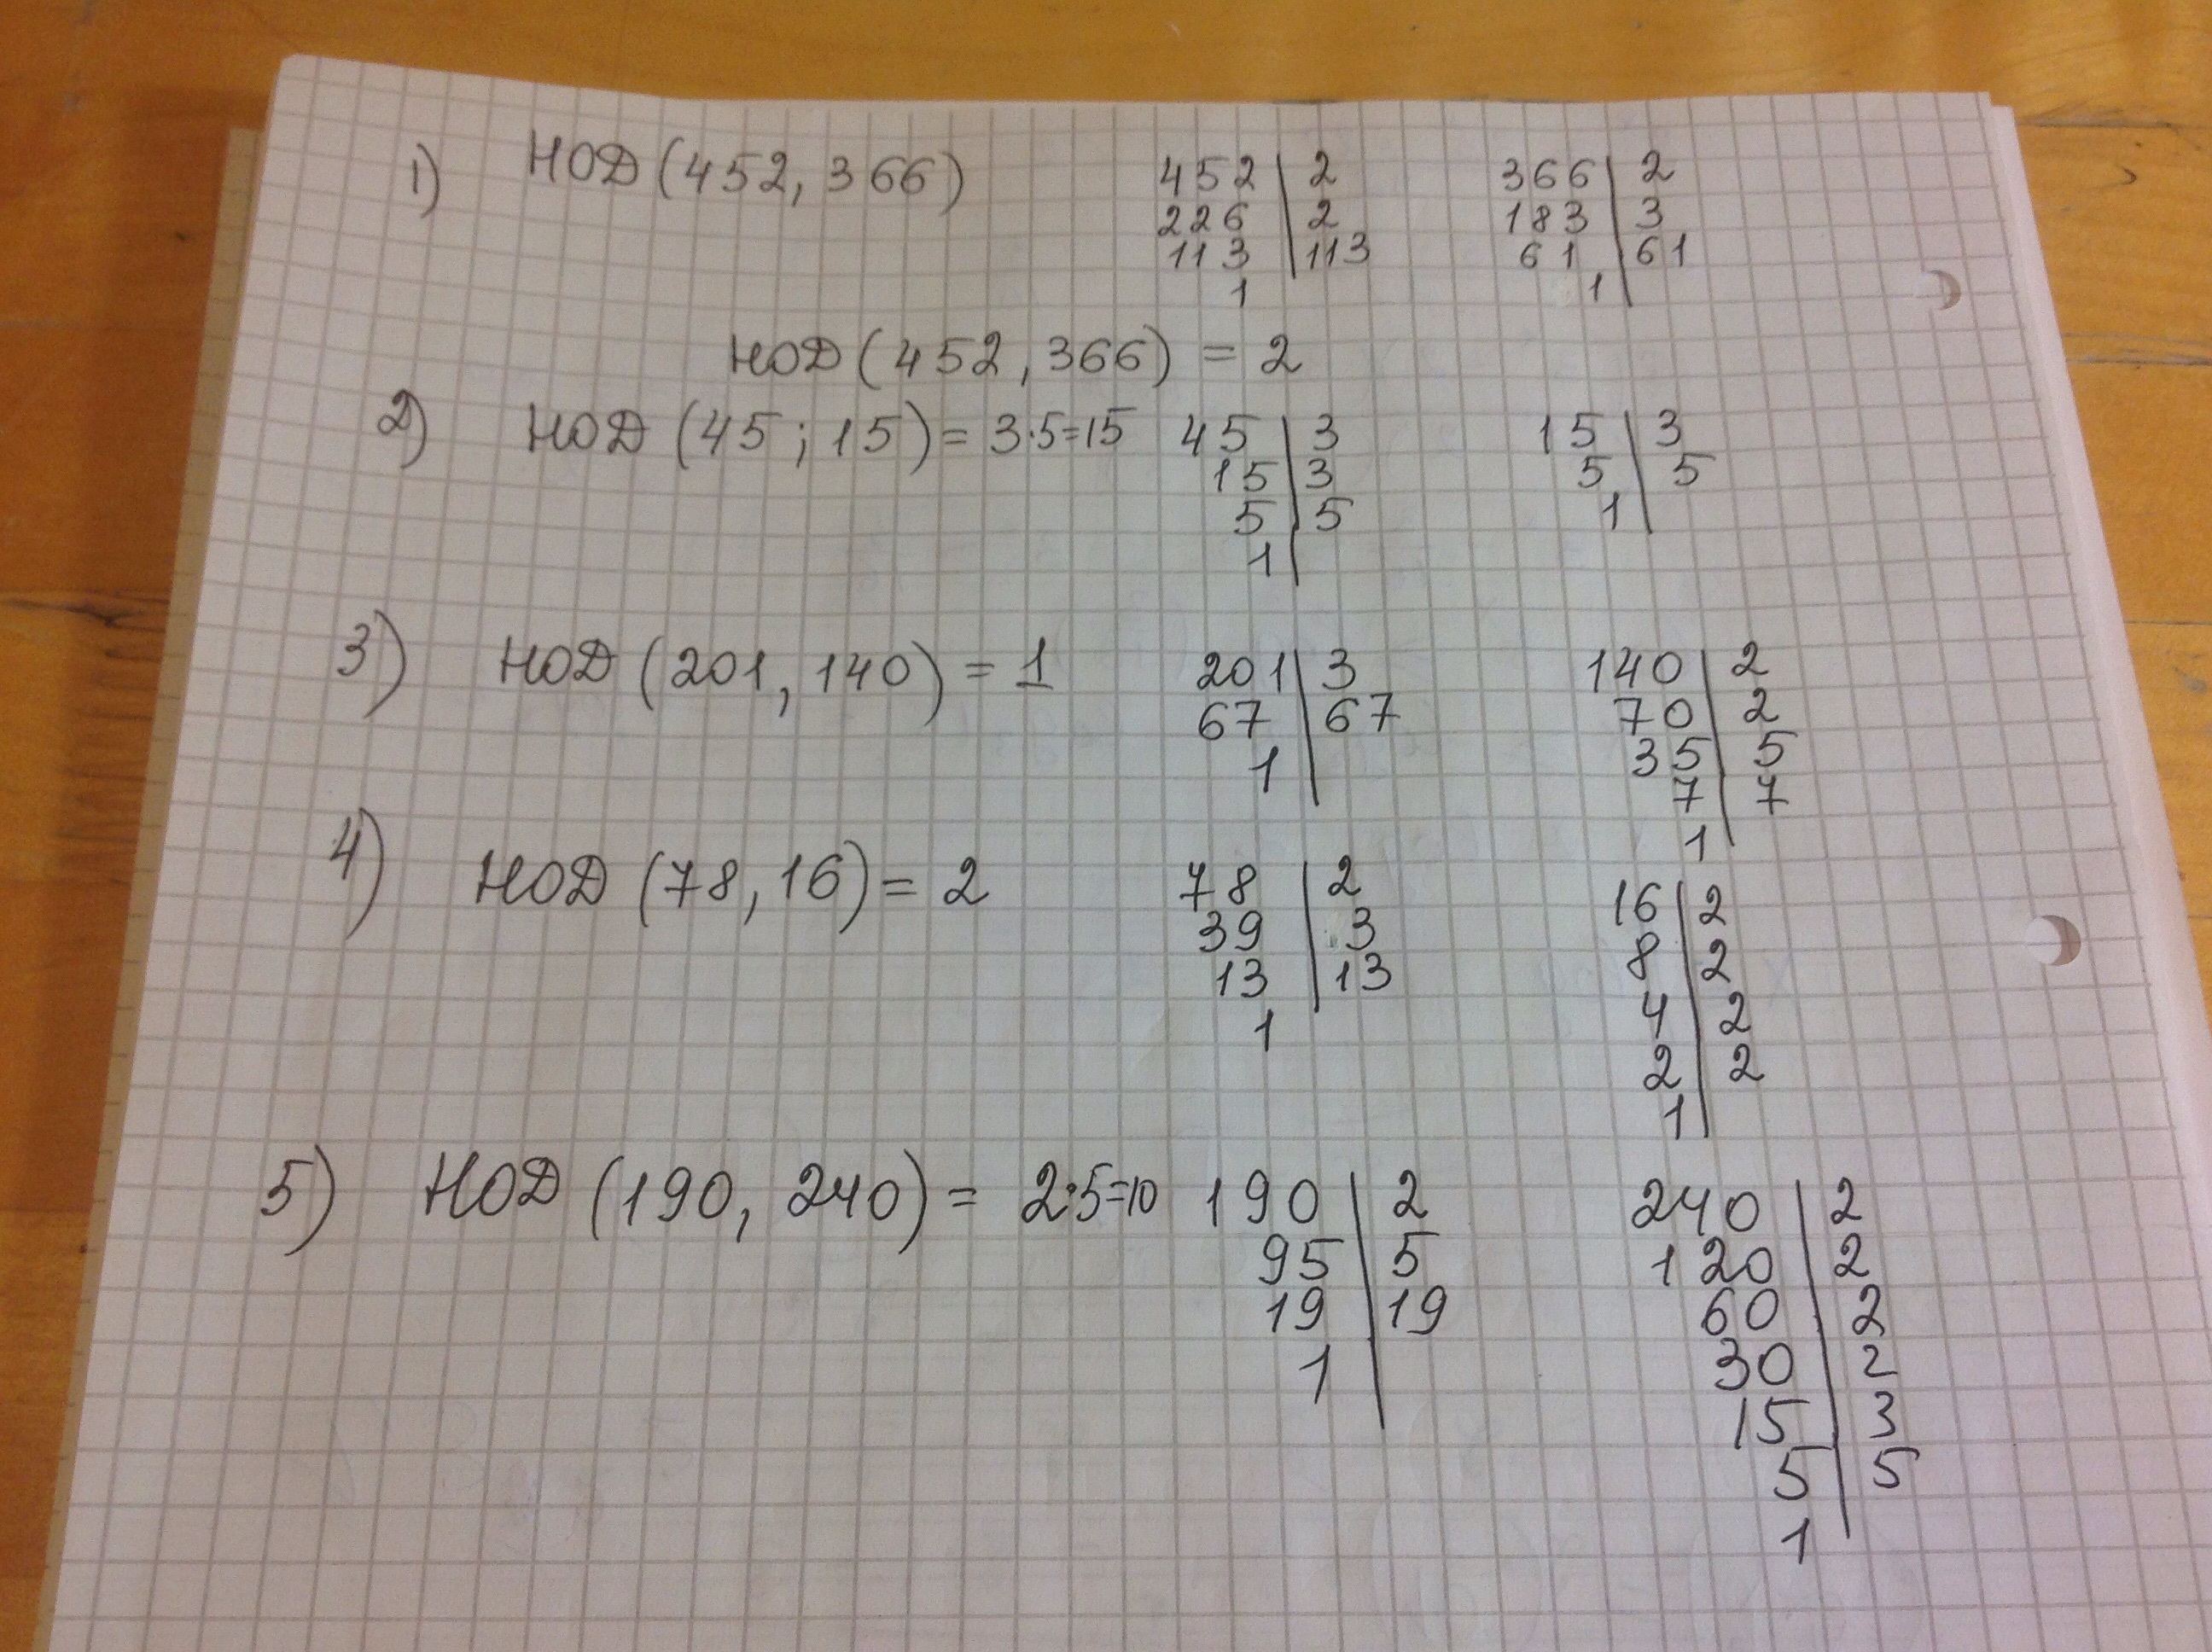 1) НОД (452, 366) 452 | 2 366 | 2
226 | 2 183 | 3
113 | 113 61 | 61
1 1
НОД (452, 366) = 2
2) НОД (45; 15) = 3·5=15 45 | 3 15 | 3
15 | 3 5 | 5
5 | 5 1
1
3) НОД (201, 140) = 1 201 | 3 140 | 2
67 | 67 70 | 2
1 35 | 5
7 | 7
1
4) НОД (78, 16) = 2 78 | 2 16 | 2
39 | 3 8 | 2
13 | 13 4 | 2
1 2 | 2
1
5) НОД (190, 240) = 2·5=10 190 | 2 240 | 2
95 | 5 120 | 2
19 | 19 60 | 2
1 30 | 2
15 | 3
5 | 5
1